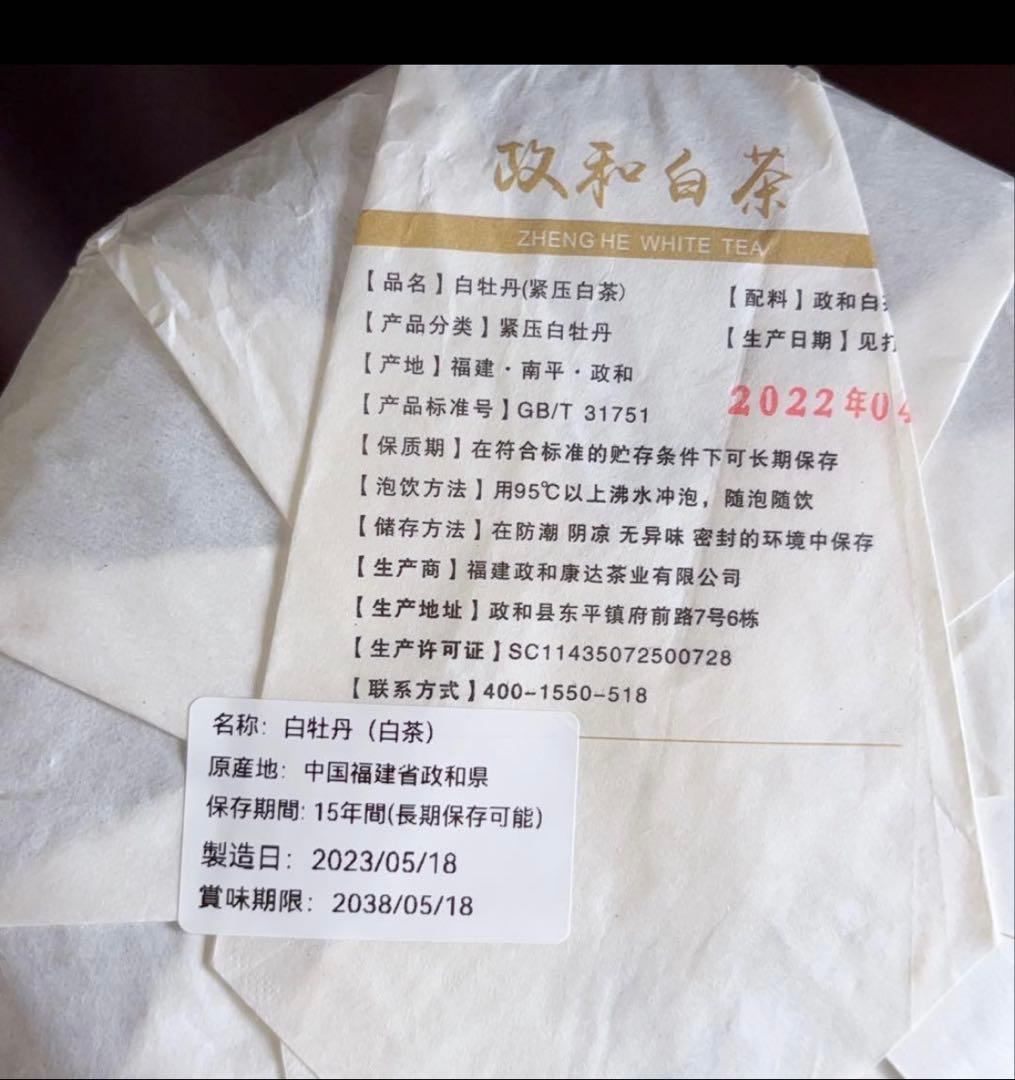 政和白茶
ZHENG HE WHITE TEA
【品名】白牡丹(紧压白茶)
【配料】政和白
【产品分类】紧压白牡丹
【生产日期】见打
【产地】福建·南平·政和
2022年04
【产品标准号】GB/T 31751
【保质期】在符合标准的贮存条件下可长期保存
【泡饮方法】用95℃以上沸水冲泡，随泡随饮
【储存方法】在防潮 阴凉 无异味 密封的环境中保存
【生产商】福建政和康达茶业有限公司
【生产地址】政和县东平镇府前路7号6栋
【生产许可证】SC11435072500728
【联系方式】400-1550-518
名称：白牡丹（白茶）
原産地：中国福建省政和県
保存期間: 15年間(長期保存可能)
製造日：2023/05/18
賞味期限：2038/05/18